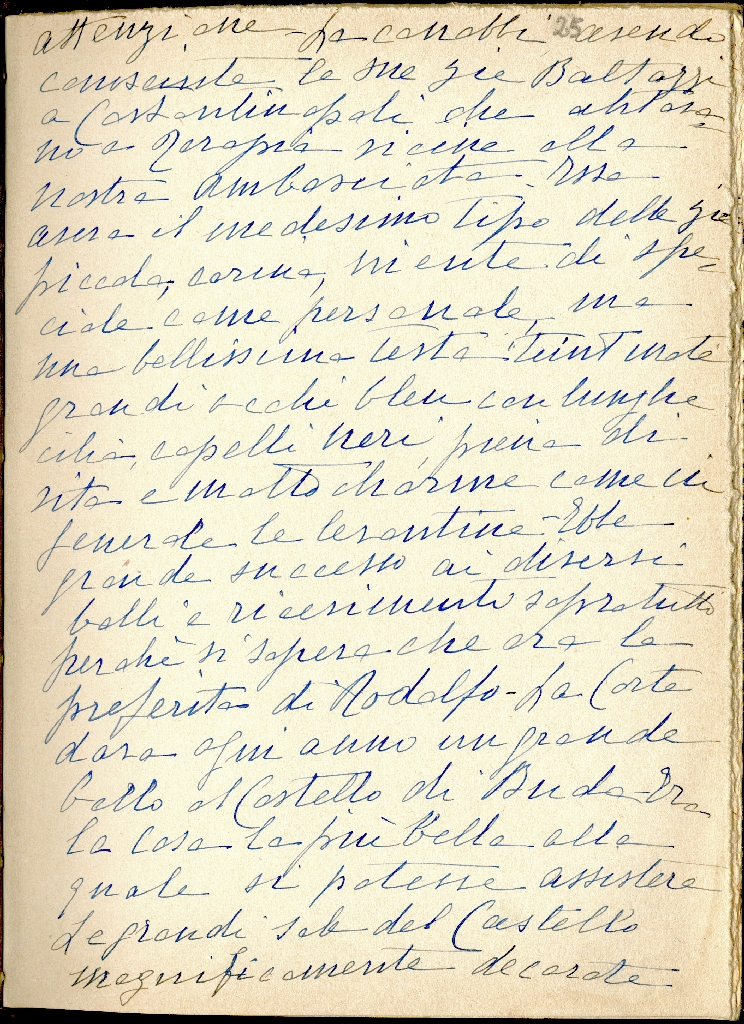 25
attenzione - La conobbi, avendo
conosciute le sue zie Baltazzi
a Costantinopoli che abitava=
no a Terapia vicine alla
nostra Ambasciata - Essa
aveva il medesimo tipo delle zie
piccola, carina, niente di spe=
ciale come personale, ma
una bellissima testa: teint mate
grandi occhi bleu con lunghe
cilia, capelli neri, piena di
vita e molto charme come in
generale le levantine - Ebbe
grande successo ai diversi
balli e ricevimenti sopratutto
perchè si sapeva che era la
preferita di Rodolfo - La Corte
dava ogni anno un grande
ballo al Castello di Buda - Era
la cosa la più bella alla
quale si potesse assistere
Le grandi sale del Castello
magnificamente decorate